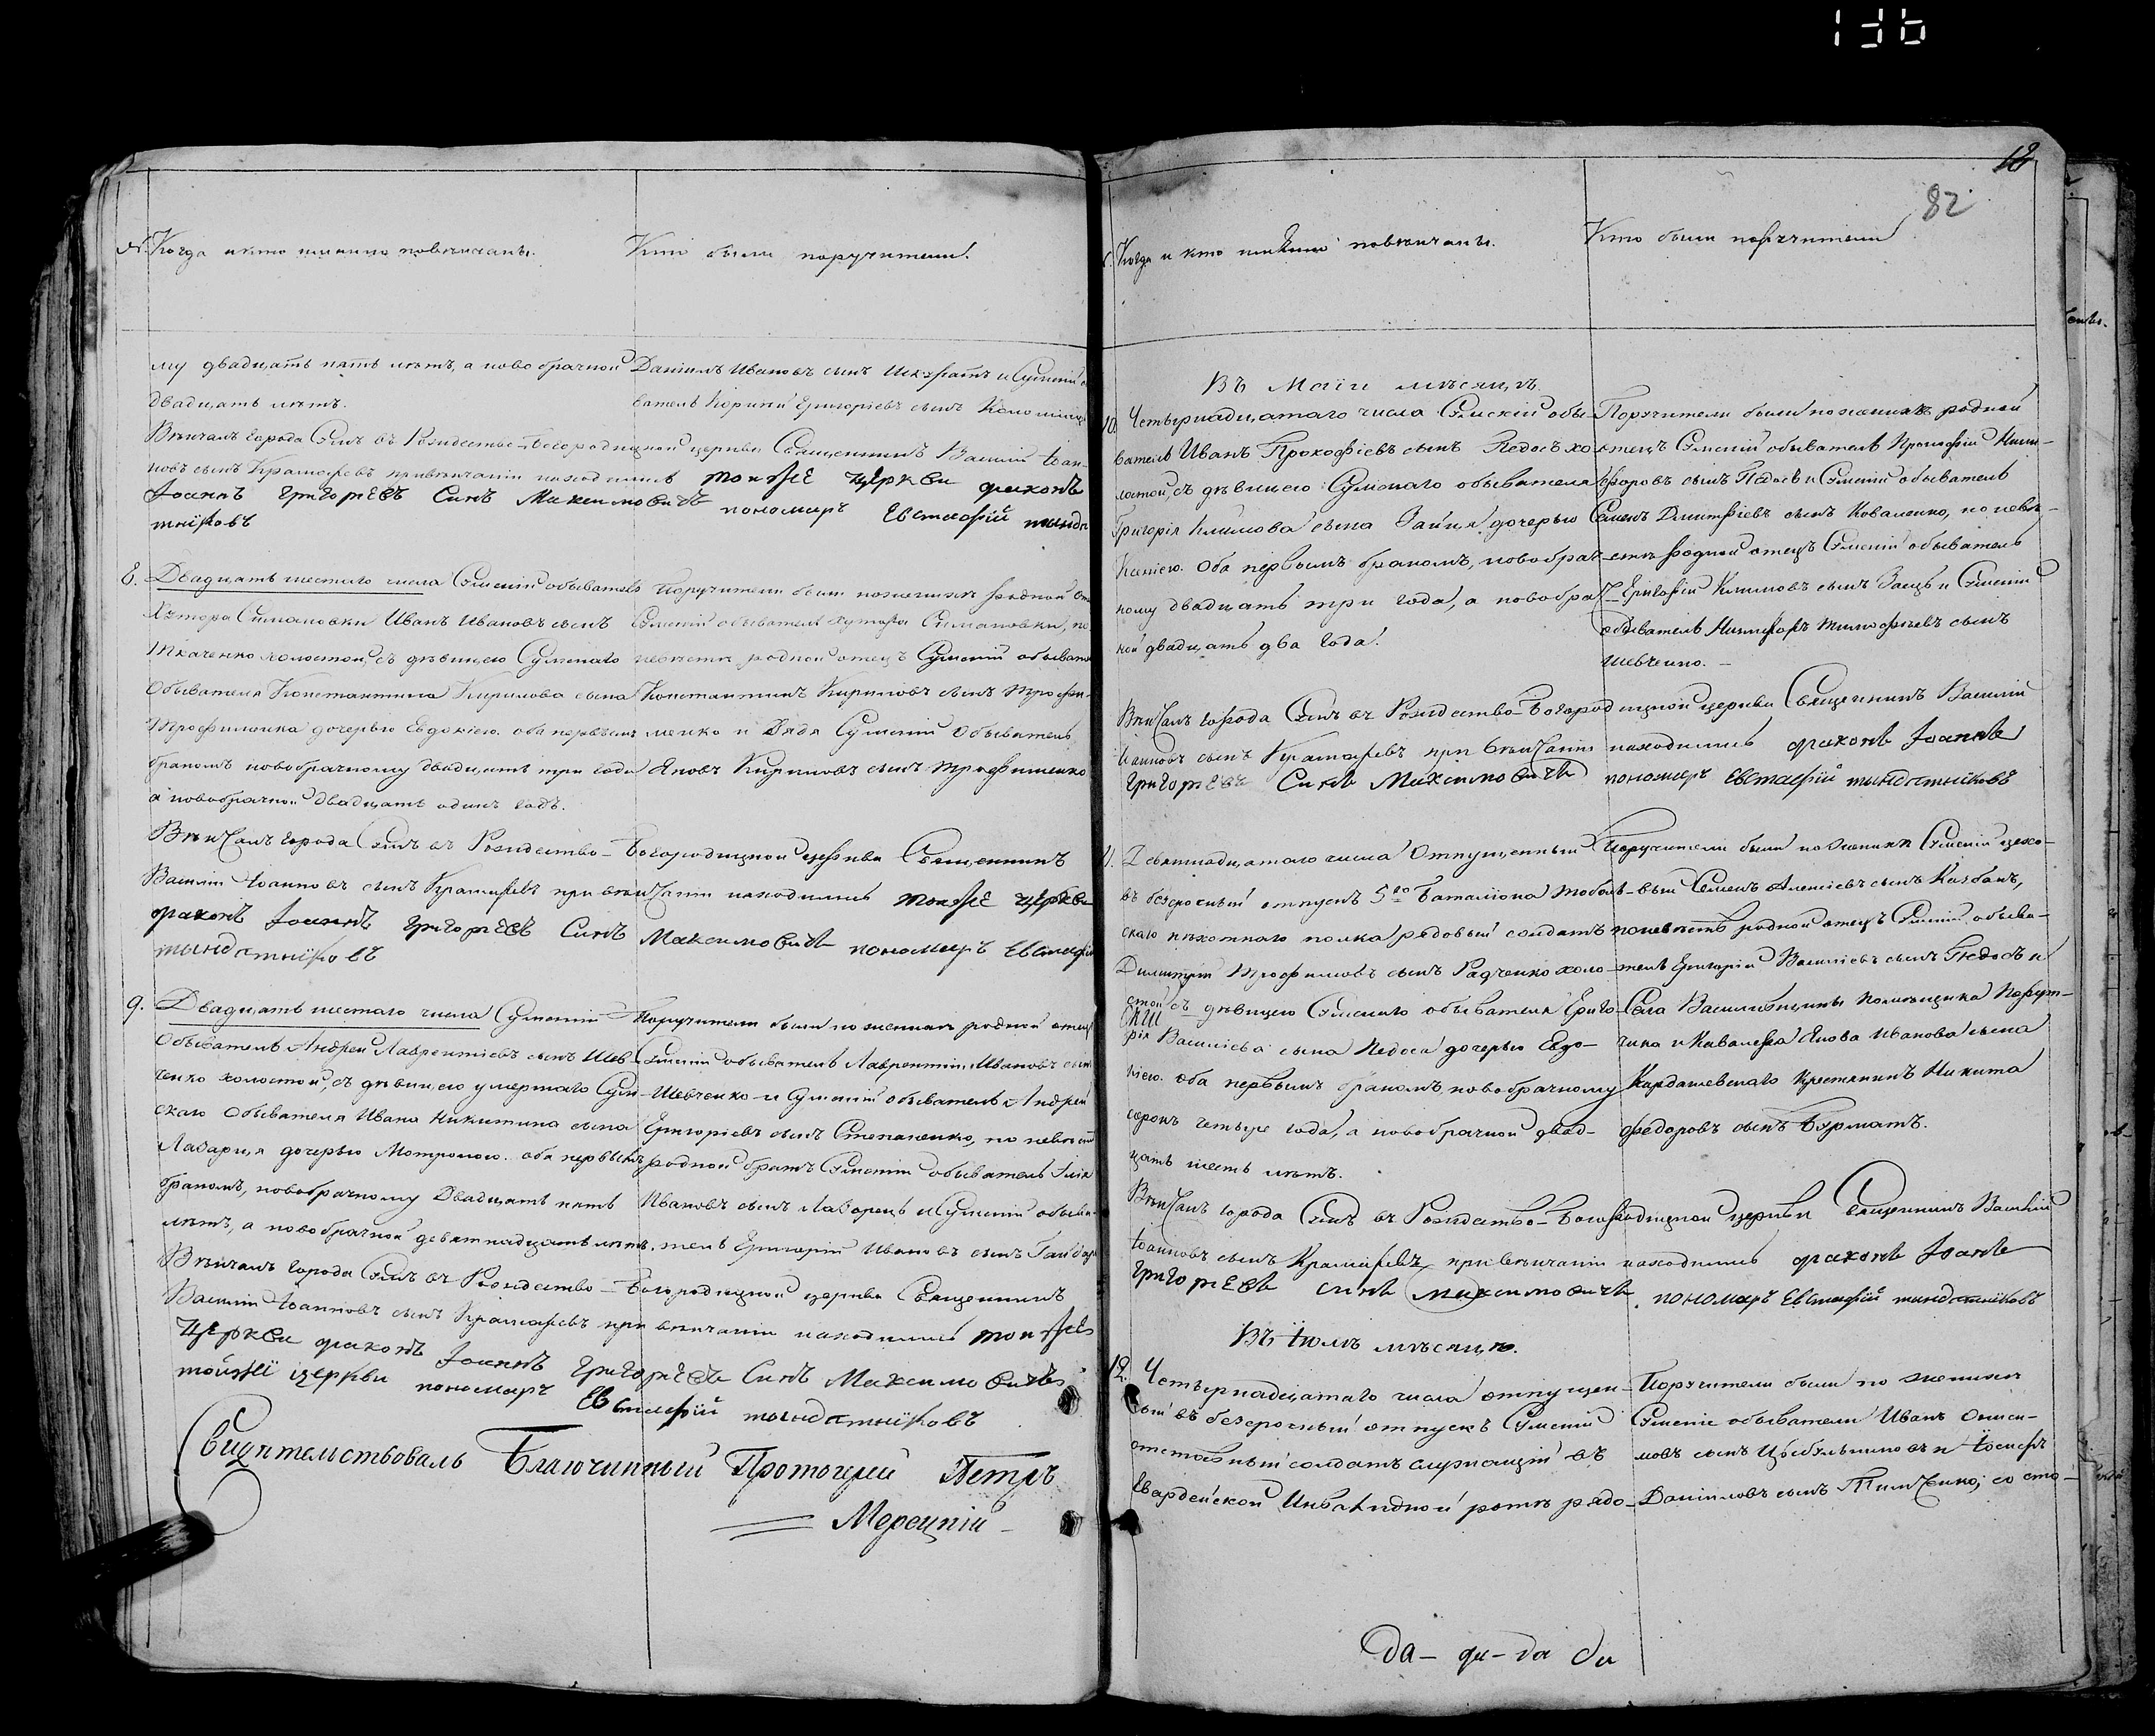 136
№. Когда и кто именно повѣнчаны.
Кто были поручители.
му двадцать пять лѣтъ, а новобрачной
двадцать лѣтъ.
Даніилъ Ивановъ сынъ и Сумскій о
ватель Корнѣй Григоріевъ сынъ
Вѣнчалъ города Сумъ въ Рождество-Богородицкой церкви Священникъ Василій Іоан-
новъ сынъ Крамаревъ при вѣнчаніи находились тояже церкви диаконъ
Іоаннъ григорьевъ Синъ Максимовичъ пономарь Евстафій
8. Двадцать шестаго числа Сумскій обыватель
Хутора Симановки Иванъ Ивановъ сынъ
Ткаченко холостой, съ дѣвицею Сумскаго
Обывателя Константина Кирилова сына
Трофименка дочерью Евдокіею. оба первымъ
бракомъ новобрачному двадцать три года
а новобрачной двадцать одинъ годъ.
Поручители были по женихѣ родной от
Сумскій обыватель хутора Симановки, по
невѣстѣ родной отецъ Сумскій обыват
Константинъ Кириловъ сынъ Трофи-
менко и дядя Сумскій Обыватель
Яковъ Кириловъ сынъ Трофименко
Вѣнчалъ города Сумъ въ Рождество-Богородицкой церкви Священникъ
Василій Іоанновъ сынъ Крамаревъ при вѣнчаніи находились тояже церкви
диаконъ Іоаннъ григорьевъ Синъ Максимовичъ пономарь Евстафій
9. Двадцать шестаго числа Сумскій
Обыватель Андрей Лаврентіевъ сынъ Шев-
ченко холостой, съ дѣвицею умершаго Сум-
скаго Обывателя Ивана Никитина сына
Лазарця дочерью Мотроною. оба первымъ
бракомъ, новобрачному Двадцать пять
лѣтъ, а новобрачной девятнадцать лѣтъ.
Поручители были по женихѣ родной отецъ
Сумскій обыватель Лаврентій Ивановъ сынъ
Шевченко и Сумскій обыватель Андрей
Григоріевъ сынъ Степаненко, по невѣстѣ
родной братъ Сумскій обыватель Илія
Ивановъ сынъ Лазорецъ и Сумскій обыва-
тель Григорій Ивановъ сынъ
Вѣнчалъ города Сумъ въ Рождество-Богородицкой церкви Священникъ
Василій Іоанновъ сынъ Крамаревъ при вѣнчаніи находились тояже
церкви диаконъ Іоаннъ григорьевъ Синъ Максимовичъ
тойжеі церкви пономарь Евстафій
Свидѣтельствовалъ Благочинный Протоіерей Петръ
Морецкій
82
Когда и кто именно повѣнчаны.
Кто были поручители
Въ Маіи мѣсяцѣ.
10. Четырнадцатаго числа Сумскій обы-
ватель Иванъ Прокофіевъ сынъ Педосъ хо-
лостой, съ дѣвицею Сумскаго обывателя
Григорія Климова сына Зайця дочерью
Оба первымъ бракомъ, новобрач-
ному двадцать три года, а новобрач-
ной двадцать два года.
Поручители были по женихѣ родной
отецъ Сумскій обыватель Прокофій Ники-
форовъ сынъ Педосъ и Сумскій обыватель
Семенъ Дмитріевъ сынъ Коваленко, по невѣ-
стѣ родной отецъ Сумскій обыватель
Григорій Климовъ сынъ Заецъ и Сумскій
обыватель Никифоръ Тимофѣевъ сынъ
Шевченко.
Вѣнчалъ города Сумъ въ Рождество-Богородицкой церкви Священникъ Василій
Іоанновъ сынъ Крамаревъ при вѣнчаніи находились диаконъ Іоаннъ
григорьевъ Синъ Максимовичъ пономарь Евстафій
11. Девятнадцатаго числа Отпущенный
въ безсрочный отпускъ 5го Баталіона Тоболь-
скаго пѣхотнаго полка рядовый солдатъ
Димитрій Трофимовъ сынъ Радченко холо-
стой съ дѣвицею Сумскаго обывателя Григо-
рія Василіева сына Педоса дочерью Евдо-
кіею. оба первымъ бракомъ, новобрачному
сорокъ четыре года, а новобрачной двад-
цать шесть лѣтъ.
Поручители были по женихѣ Сумскій цехо-
вый Семенъ Алексѣевъ сынъ
по невѣстѣ родной отецъ Сумскій обыва-
тель Григорій Василіевъ сынъ Педосъ и
Села Василивщины помѣщика Поруч-
чика и Кавалера Якова Иванова сына
Кардашевскаго Крестянинъ Никита
Федоровъ сынъ
Вѣнчалъ города Сумъ въ Рождество-Богородицкой церкви Священникъ Василій
Іоанновъ сынъ Крамаревъ при вѣнчаніи находились диаконъ Іоаннъ
григорьевъ синъ Максимовичъ пономарь Евстафій
Въ Іюлѣ мѣсяцѣ.
12. Четырнадцатаго числа отпущен-
ный въ безсрочный отпускъ Сумскій
отставный солдатъ служащій въ
Гвардейской Инвалидной ротѣ рядо-
Поручители были по женихѣ
Сумскіе обыватели Иванъ
мовъ сынъ и Іосифъ
Даніиловъ сынъ Тимченко, со сто-